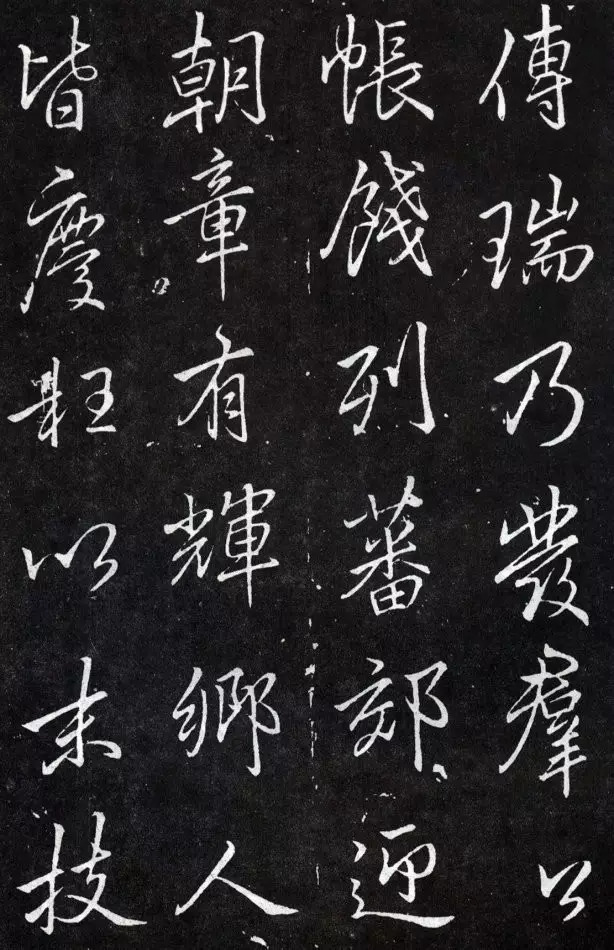 傳瑞乃發羣公
帳餞列蕃郊迎
朝章有輝鄉人
皆慶以末技